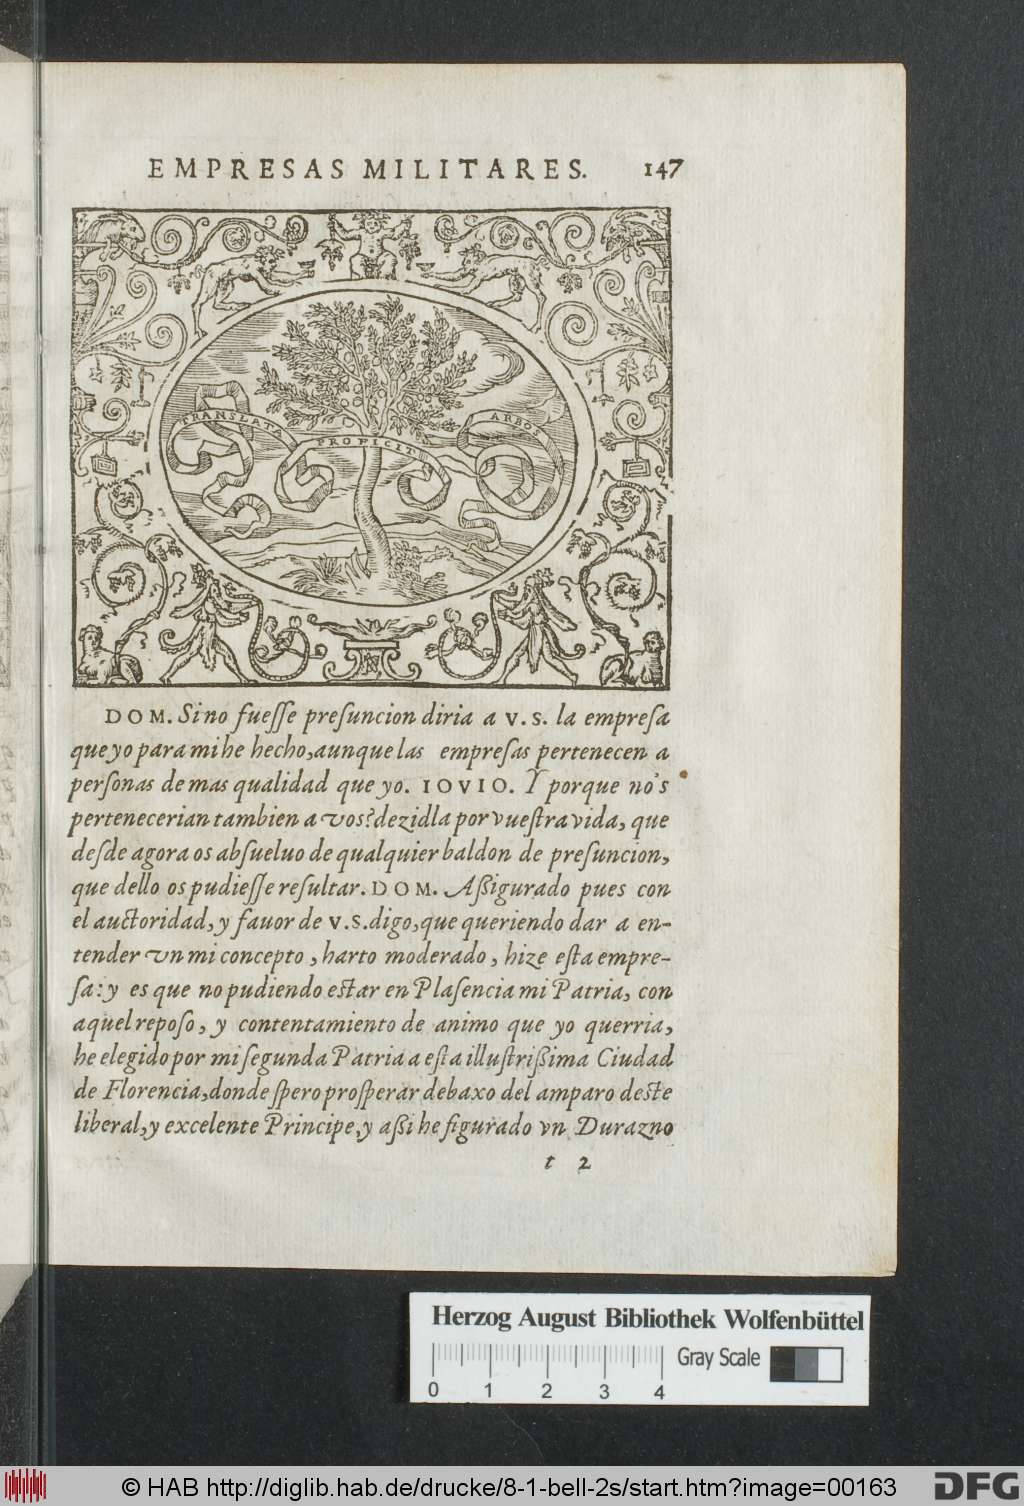 EMPRESAS MILITARES. 147
TRANSLATA
PROFICIT
ARBOS
DOM. Sino fuesse presuncion diria a V.S. la empresa
que yo para mi he hecho, aunque las empresas pertenecen a
personas de mas qualidad que yo. IOVIO. Y porque no's
pertenecerian tambien a vos? dezidla por vuestra vida, que
desde agora os absueluo de qualquier baldon de presuncion,
que dello os pudiesse resultar. DOM. Aßigurado pues con
el auctoridad, y fauor de V.S. digo, que queriendo dar a en-
tender vn mi concepto, harto moderado, hize esta empre-
sa: y es que no pudiendo estar en Plasencia mi Patria, con
aquel reposo, y contentamiento de animo que yo querria,
he elegido por mi segunda Patria a esta illustrißima Ciudad
de Florencia, donde spero prosperar debaxo del amparo deste
liberal, y excelente Principe, y aßi he figurado vn Durazno
t 2
Herzog August Bibliothek Wolfenbüttel
Gray Scale
0 1 2 3 4
© HAB http://diglib.hab.de/drucke/8-1-bell-2s/start.htm?image=00163
DFG